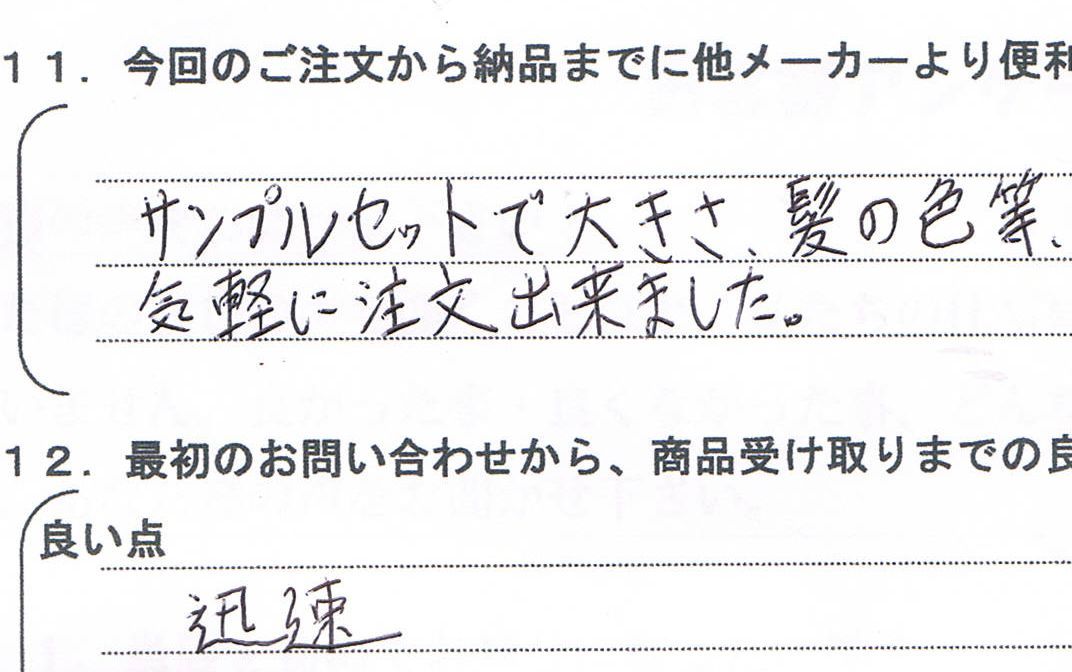 11．今回のご注文から納品までに他メーカーより便利
サンプルセットで大きさ、髪の色等、
気軽に注文出来ました。
12．最初のお問い合わせから、商品受け取りまでの良
良い点
迅速